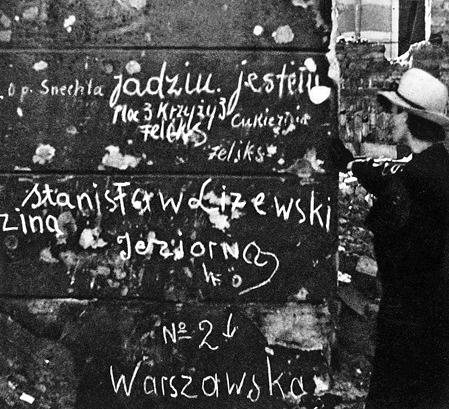 o p. Snechta
Jadziu. jestem
Plac 3 Krzyży 3
Feliks Cukiernia
Feliks
Stanisław Lizewski
ziną
Jeziorna
No 2
Warszawska